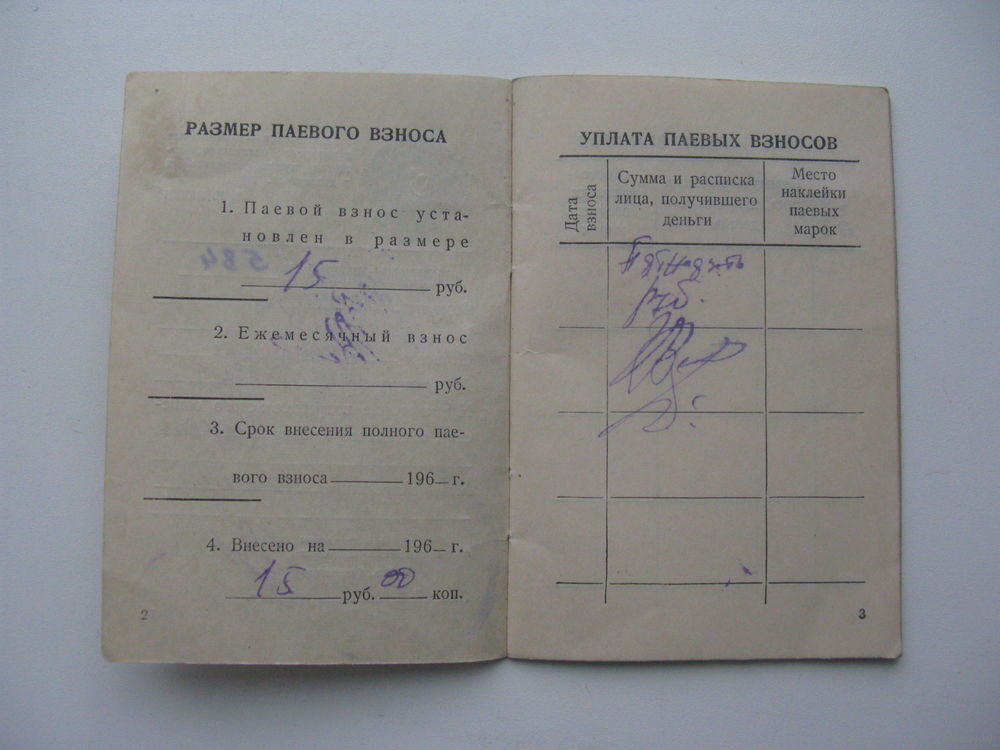 РАЗМЕР ПАЕВОГО ВЗНОСА
1. Паевой взнос уста-
новлен в размере
15 руб.
2. Ежемесячный взнос
руб.
3. Срок внесения полного пае-
вого взноса 196 г.
4. Внесено на 196 г.
15 руб. 00 коп.
2
УПЛАТА ПАЕВЫХ ВЗНОСОВ
Дата
взноса
Сумма и расписка
лица, получившего
деньги
Место
наклейки
паевых
марок
руб.
3